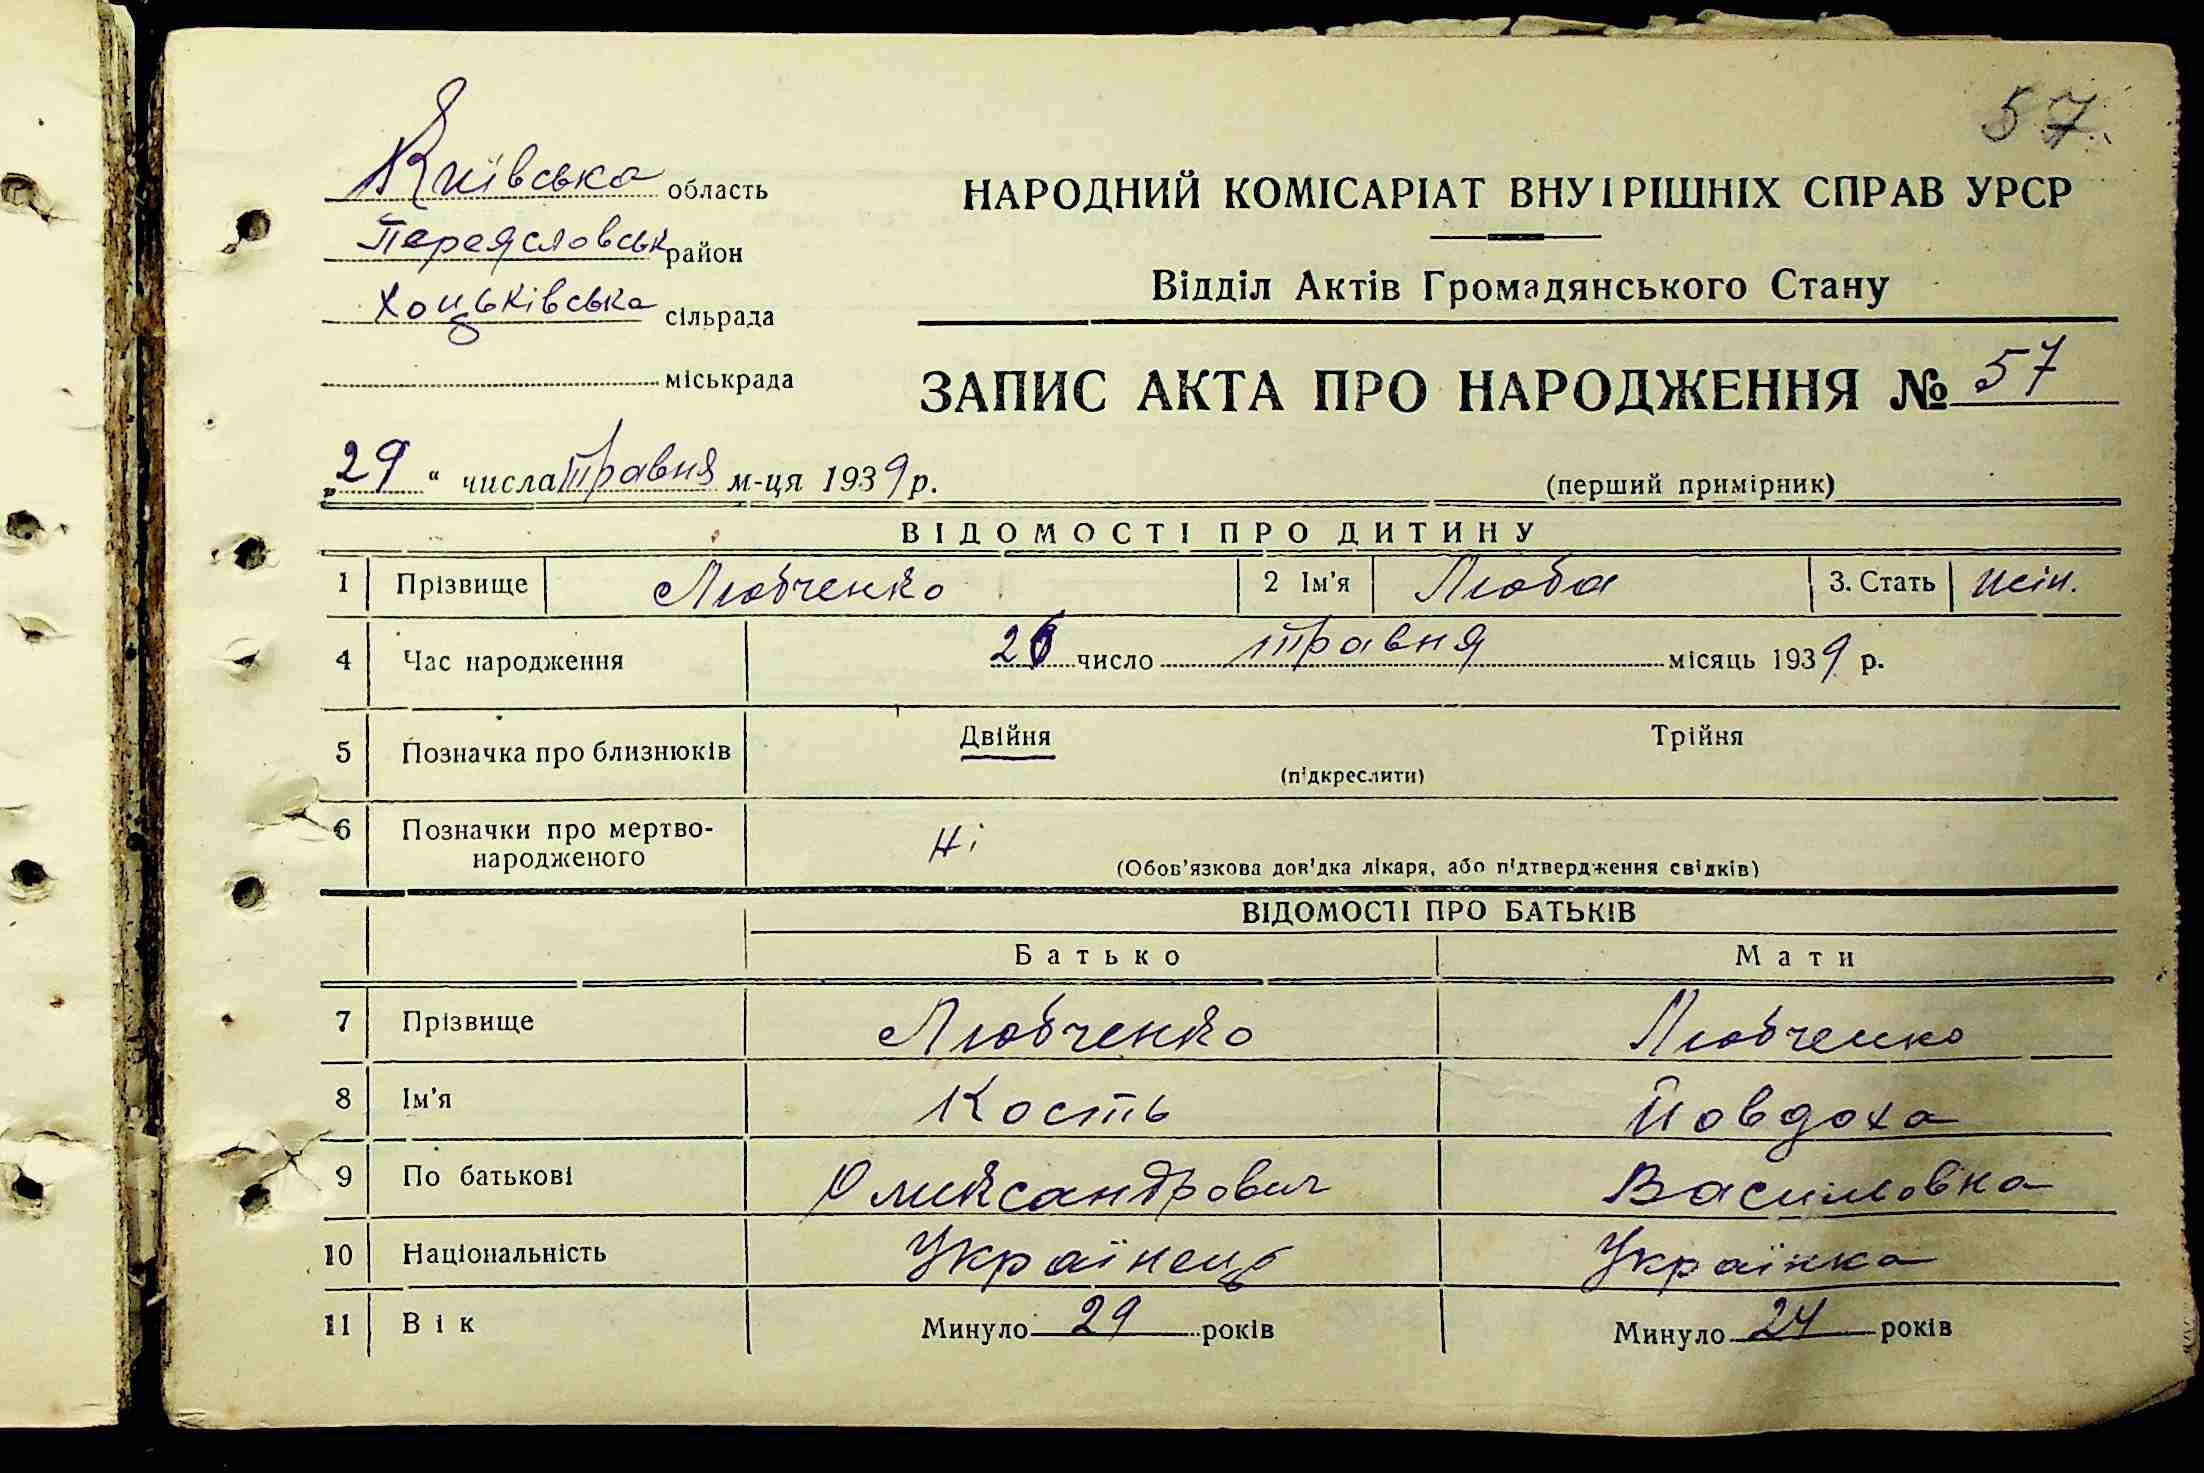 57
Київська область
Переяславськ район
Хоцьківська сільрада
міськрада
НАРОДНИЙ КОМІСАРІАТ ВНУТРІШНІХ СПРАВ УРСР
Відділ Актів Громадянського Стану
ЗАПИС АКТА ПРО НАРОДЖЕННЯ № 57
„29“ числа травня м-ця 1939 р.
(перший примірник)
ВІДОМОСТІ ПРО ДИТИНУ
1 Прізвище Любченко 2 Ім'я Люба 3. Стать жін.
4 Час народження число травня місяць 1939 р.
5 Позначка про близнюків Двійня Трійня
(підкреслити)
6 Позначки про мертво-
народженого Ні
(Обов'язкова довідка лікаря, або підтвердження свідків)
ВІДОМОСТІ ПРО БАТЬКІВ
Батько Мати
7 Прізвище Любченко Любченко
8 Ім'я Кость Йовдоха
9 По батькові Олександрович Василовна
10 Національність Українець Українка
11 Вік Минуло 29 років Минуло 24 років